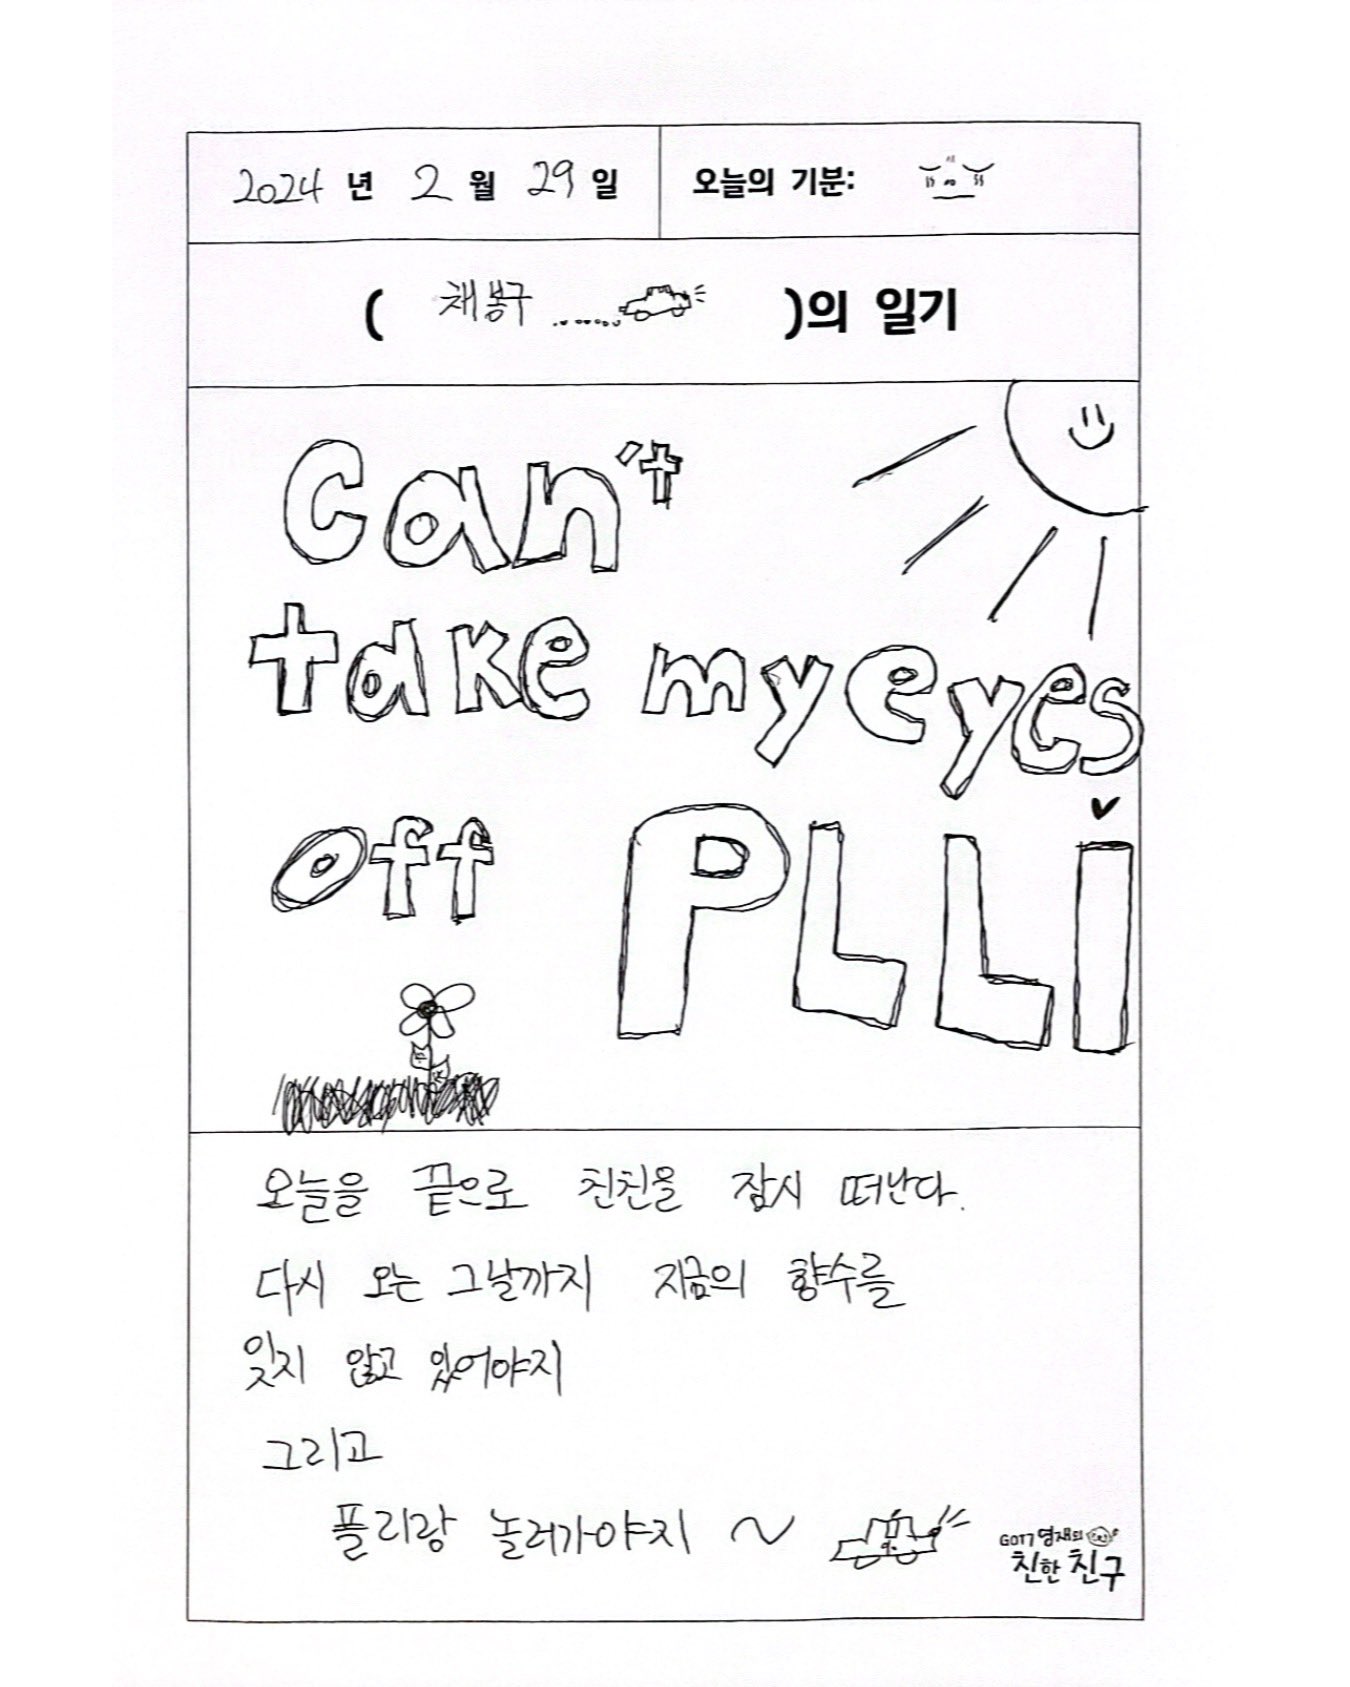 2024 년 2 월 29 일
오늘의 기분:
( 채봉구 )의 일기
Can't
take my eyes
off PLLI
오늘을 끝으로 친친을 잠시 떠난다.
다시 오는 그날까지 지금의 향수를
잊지 않고 있어야지
그리고
플리랑 놀러가야지 ~
GOT7 영재의
친한 친구